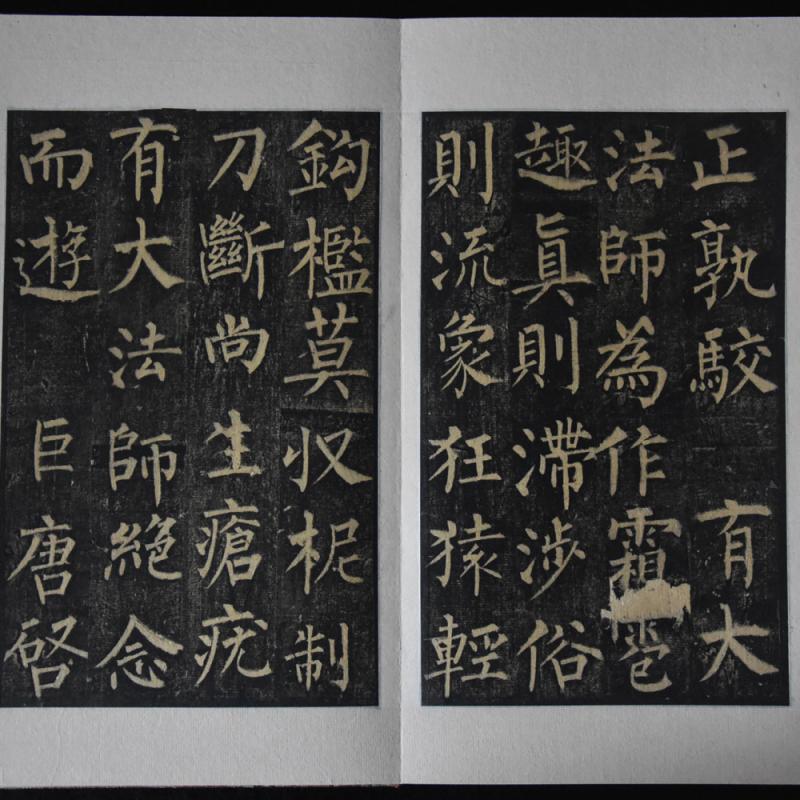 正孰駮 有大
法師為作霜雹
趣眞則滯涉俗
則流象狂猿輕
鈎檻莫収柅制
刀斷尚生瘡疣
有大法師絶念
而遊 巨唐啓